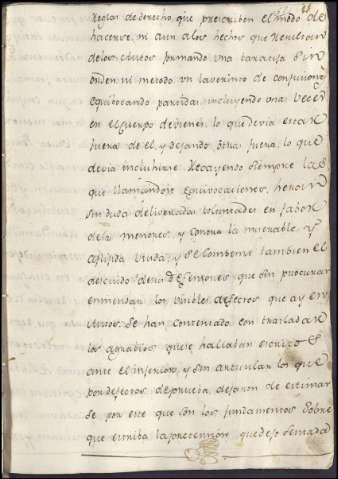 Reglas de derecho, que prescriben el modo de
hacerse, ni aun a los hechos que resultan
de los autos formando una
orden ni metodo, un laverinto de confucion,
equivocando partidas, incluyendo una vecez
en el cuerpo de vienes, lo que devia estar
fuera de el, y dejando otra fuera, lo que
devia incluhirse. Recayendo siempre las
que llamandose equivocaciones, heron
sin duda deliveradas voluntades en fabor
de la menores, y contra la miserable, y
afligida viuda; y se combense tambien el
descuido de su defensores, que sin procurar
enmendar los visibles defectos que ay en
autos, se han contentado con trasladar
los agrabios que se hallaban escritos
ante el inferior, y sin articular los que
por defectos de prueba, dejaron de estimar
se por este que son los fundamentos sobre
que estriba la pretencion, quedese